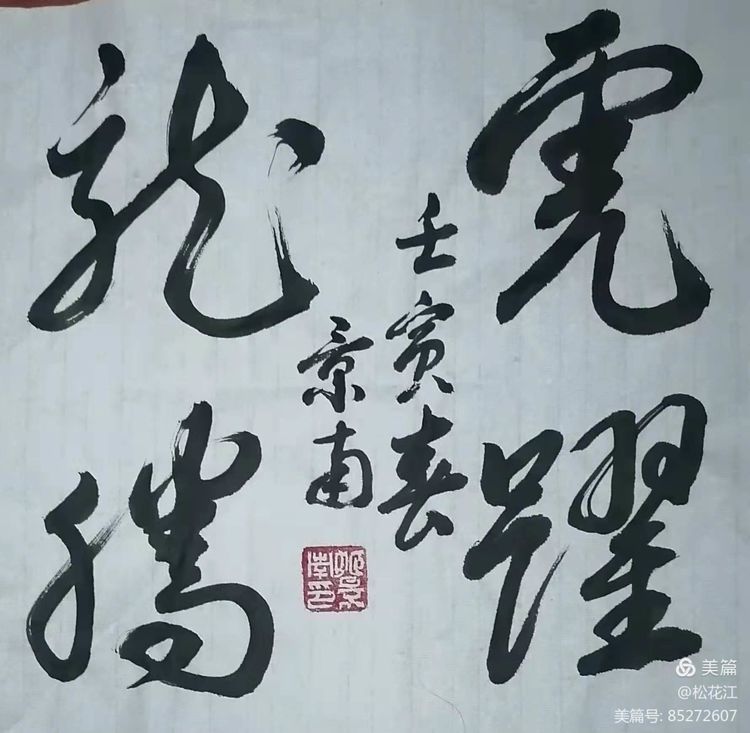 虎躍
龍騰
壬寅春
景南
美篇
@松花江
美篇号: 85272607